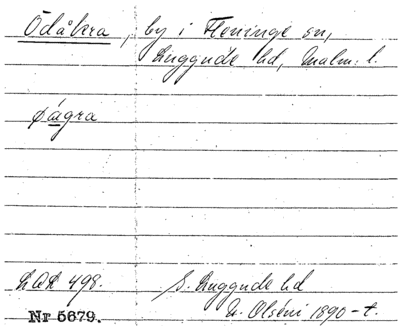 Ödåkra, by i Fleninge sn,
Luggude hd, Malm. l.
ǿagra
LAL 498. S. Luggude hd
Nr 5679. N. Olséni 1890-t.